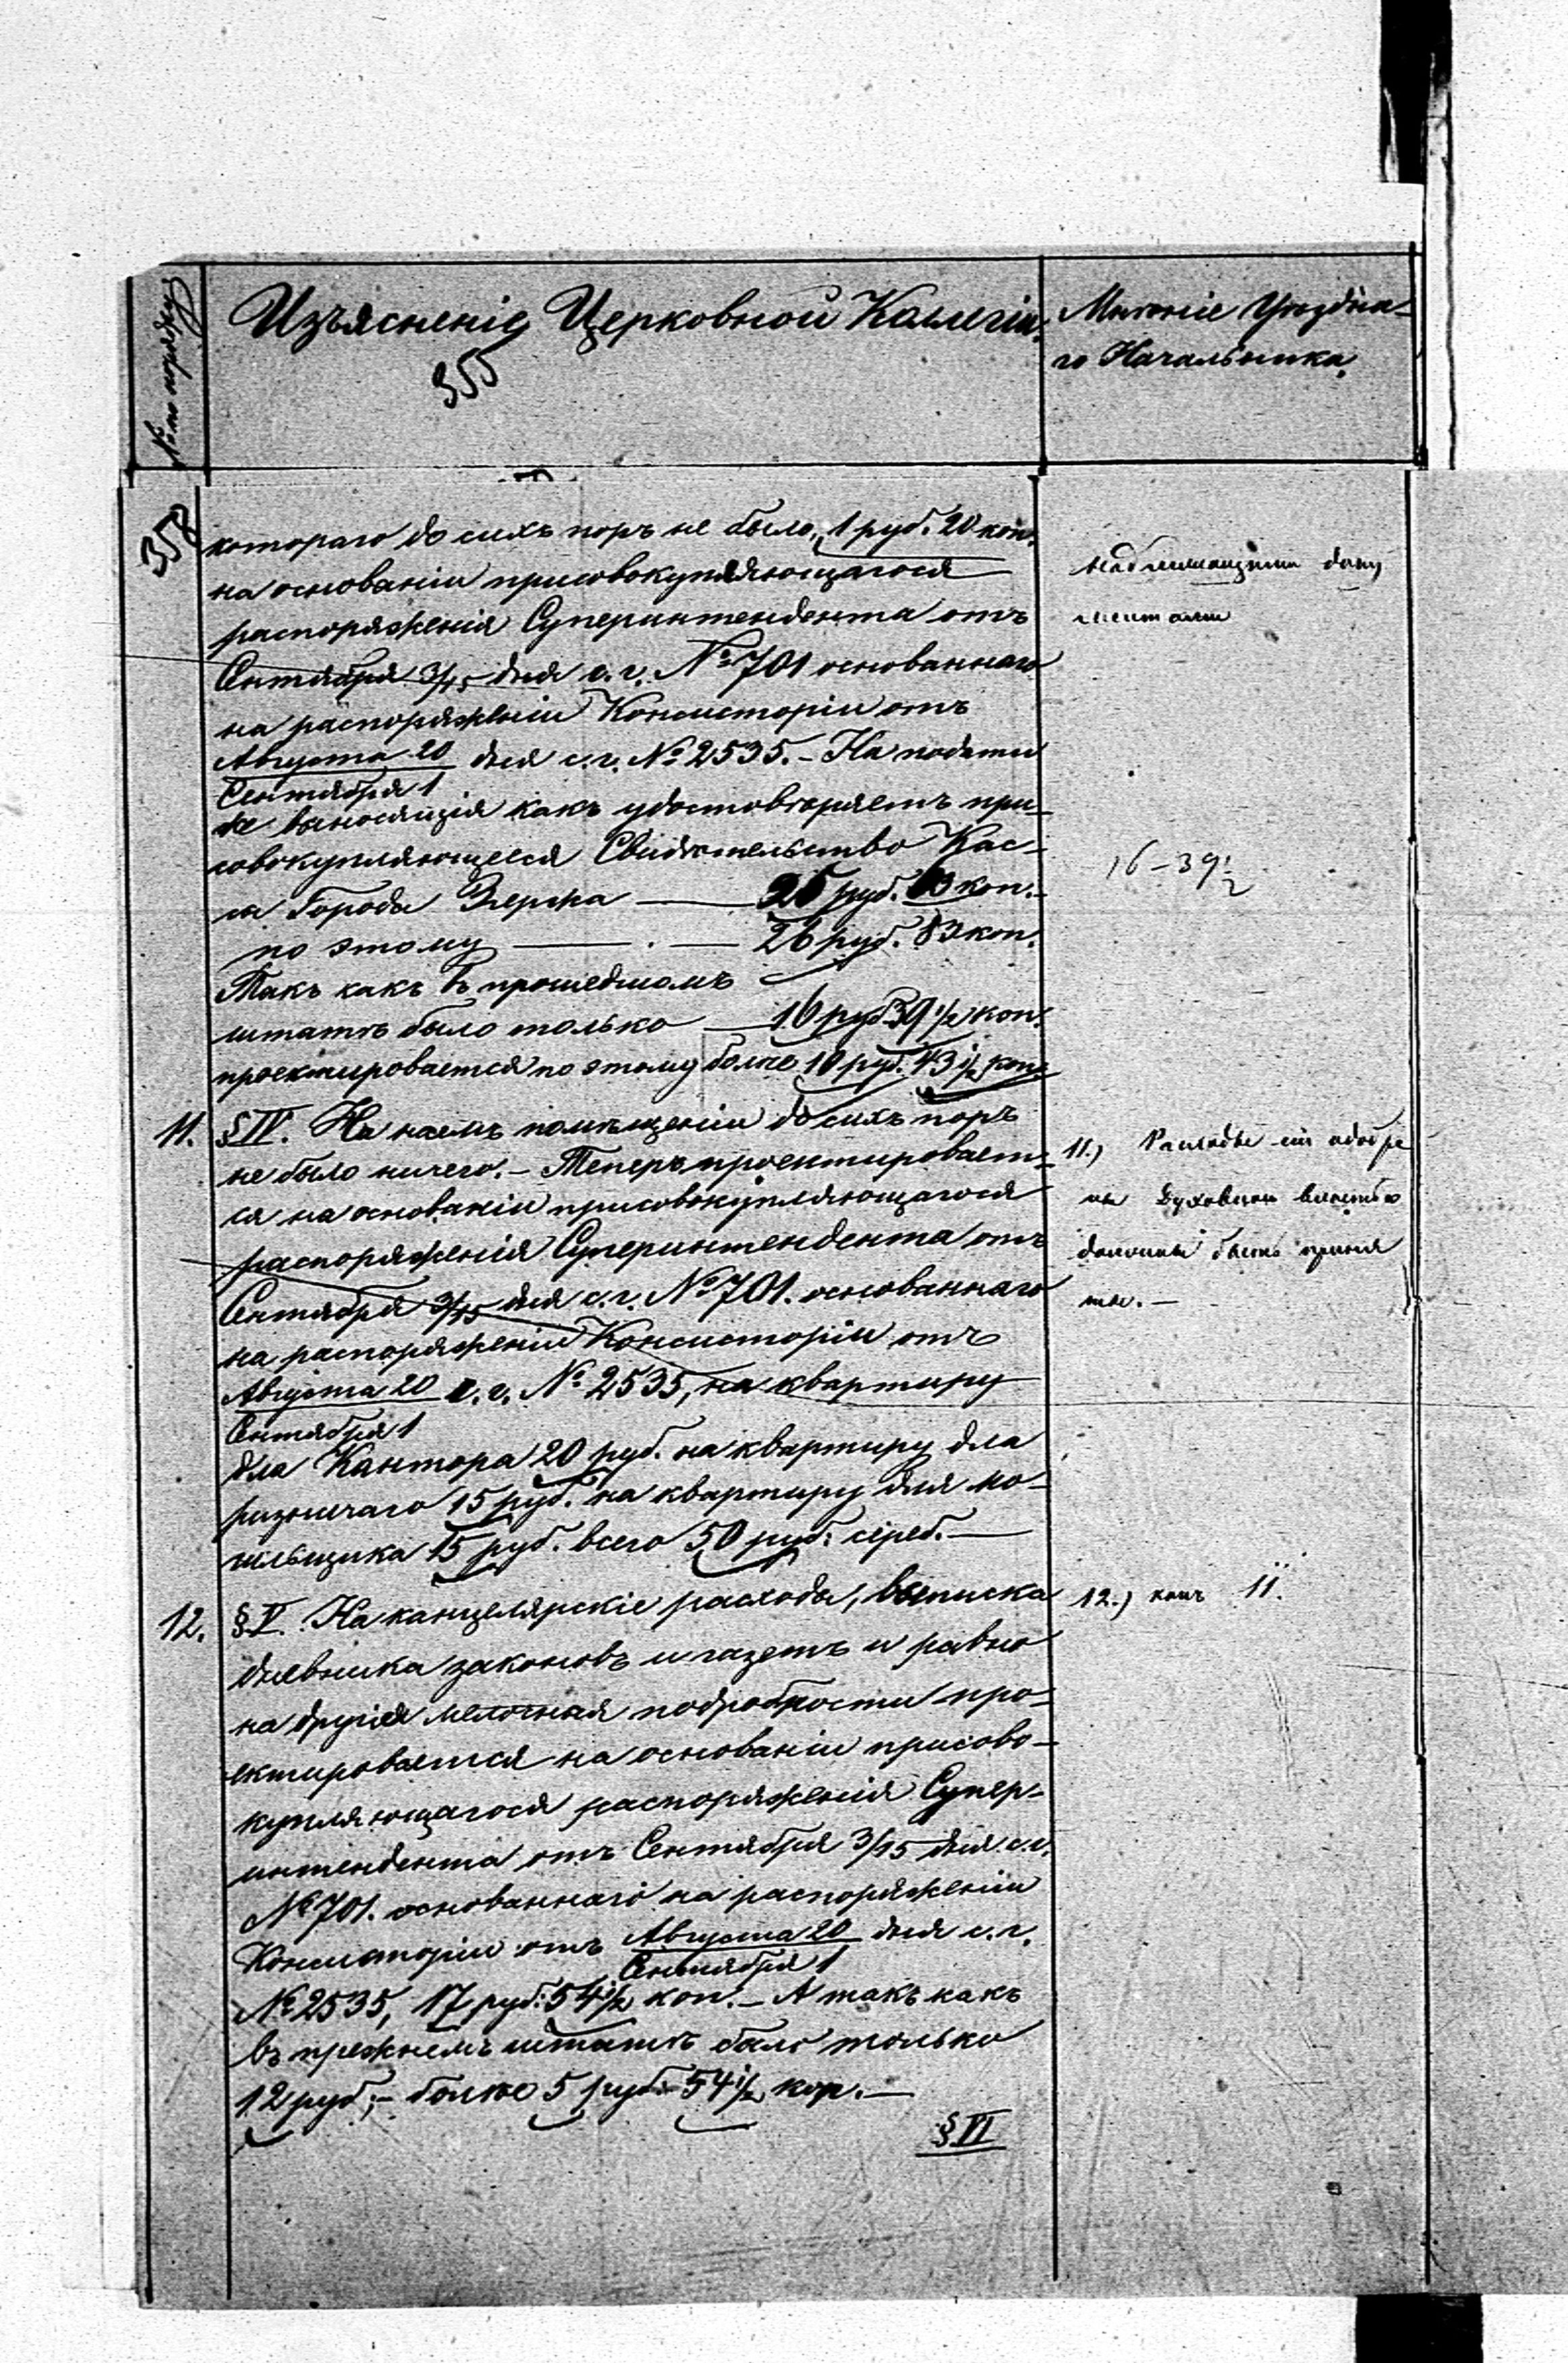 № по порядку
Изъясненіе Церковной Коллегіи.
355
Мнѣніе Уѣздна-
го Начальника.
358
котораго до сихъ поръ не было, 1 руб. 20 коп.
на основаніи присовокупляющагося
распоряженія Суперинтендента отъ
Сентября 3/15 дня с.г. № 701 основаннаго
на распоряженіи Консисторіи отъ
Августа 20 дня с.г. № 2535. – На подати
Сентября 1
же выносящія какъ удостовѣряетъ при-
совокупляющееся Свидѣтельство Кас-
сы Города Згержа — 25 руб. 63 коп. –
по этому — . — 26 руб. 83 коп.
Такъ какъ въ прошедшемъ
штатѣ было только — 16 руб. 39 1/2 коп.
проектировается по этому болѣе 10 руб. 43 1/2 коп.
надлежащими доку
ментами
16 – 39 1/2
11. § IV. На наемъ помѣщеніи до сихъ поръ
не было ничего. – Теперь проектировает-
ся на основаніи присовокупляющагося
распоряженія Суперинтендента отъ
Сентября 3/15 дня с.г. № 701. основаннаго
на распоряженіи Консисторіи отъ
Августа 20 с.г. № 2535, на квартиру
Сентября 1
для Кантора 20 руб. на квартиру для
ризничаго 15 руб. на квартиру для мо-
гильщика 15 руб. всего 50 руб. сереб. —
11.) Расходы одобре
ны Духовною властью
должны быть приня
ты. –
12. § V. На канцелярскіе расходы, выписка
дневника законовъ и газетъ и равно
на другія мелочныя подробности про-
ектировается на основаніи присово-
купляющагося распоряженія Супер-
интендента отъ Сентября 3/15 дня с.г.
№ 701. основаннаго на распоряженіи
Консисторіи отъ Августа 20 дня с.г.
Сентября 1
№ 2535, 17 руб. 54 1/2 коп. – А такъ какъ
въ прежнемъ штатѣ было только
12 руб; – болѣе 5 руб. 54 1/2 коп. —
12.) какъ 11.
§ VI